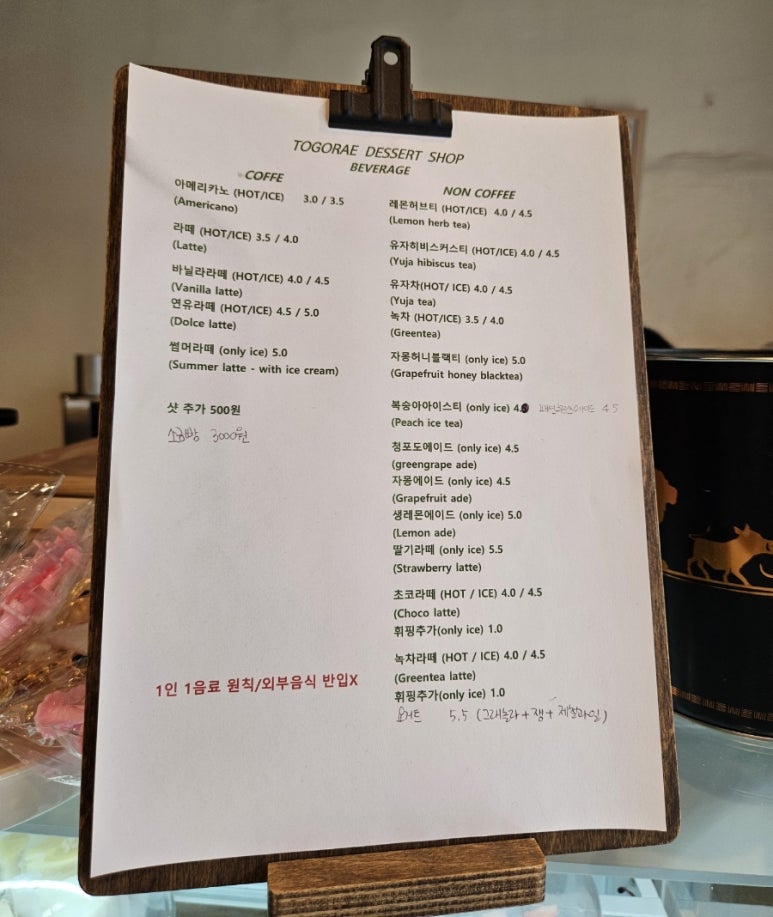 TOGORAE DESSERT SHOP
BEVERAGE
COFFE
아메리카노 (HOT/ICE) 3.0 / 3.5
(Americano)
라떼 (HOT/ICE) 3.5 / 4.0
(Latte)
바닐라라떼 (HOT/ICE) 4.0 / 4.5
(Vanilla latte)
연유라떼 (HOT/ICE) 4.5 / 5.0
(Dolce latte)
썸머라떼 (only ice) 5.0
(Summer latte - with ice cream)
샷 추가 500원
소금빵 3000원
1인 1음료 원칙/외부음식 반입X
NON COFFEE
레몬허브티 (HOT/ICE) 4.0 / 4.5
(Lemon herb tea)
유자히비스커스티 (HOT/ICE) 4.0 / 4.5
(Yuja hibiscus tea)
유자차(HOT/ ICE) 4.0 / 4.5
(Yuja tea)
녹차 (HOT/ICE) 3.5 / 4.0
(Greentea)
자몽허니블랙티 (only ice) 5.0
(Grapefruit honey blacktea)
복숭아아이스티 (only ice) 4. 4.5
(Peach ice tea)
청포도에이드 (only ice) 4.5
(greengrape ade)
자몽에이드 (only ice) 4.5
(Grapefruit ade)
생레몬에이드 (only ice) 5.0
(Lemon ade)
딸기라떼 (only ice) 5.5
(Strawberry latte)
초코라떼 (HOT / ICE) 4.0 / 4.5
(Choco latte)
휘핑추가(only ice) 1.0
녹차라떼 (HOT / ICE) 4.0 / 4.5
(Greentea latte)
휘핑추가(only ice) 1.0
요거트 5.5 (그래놀라 + 잼 + 제철과일)